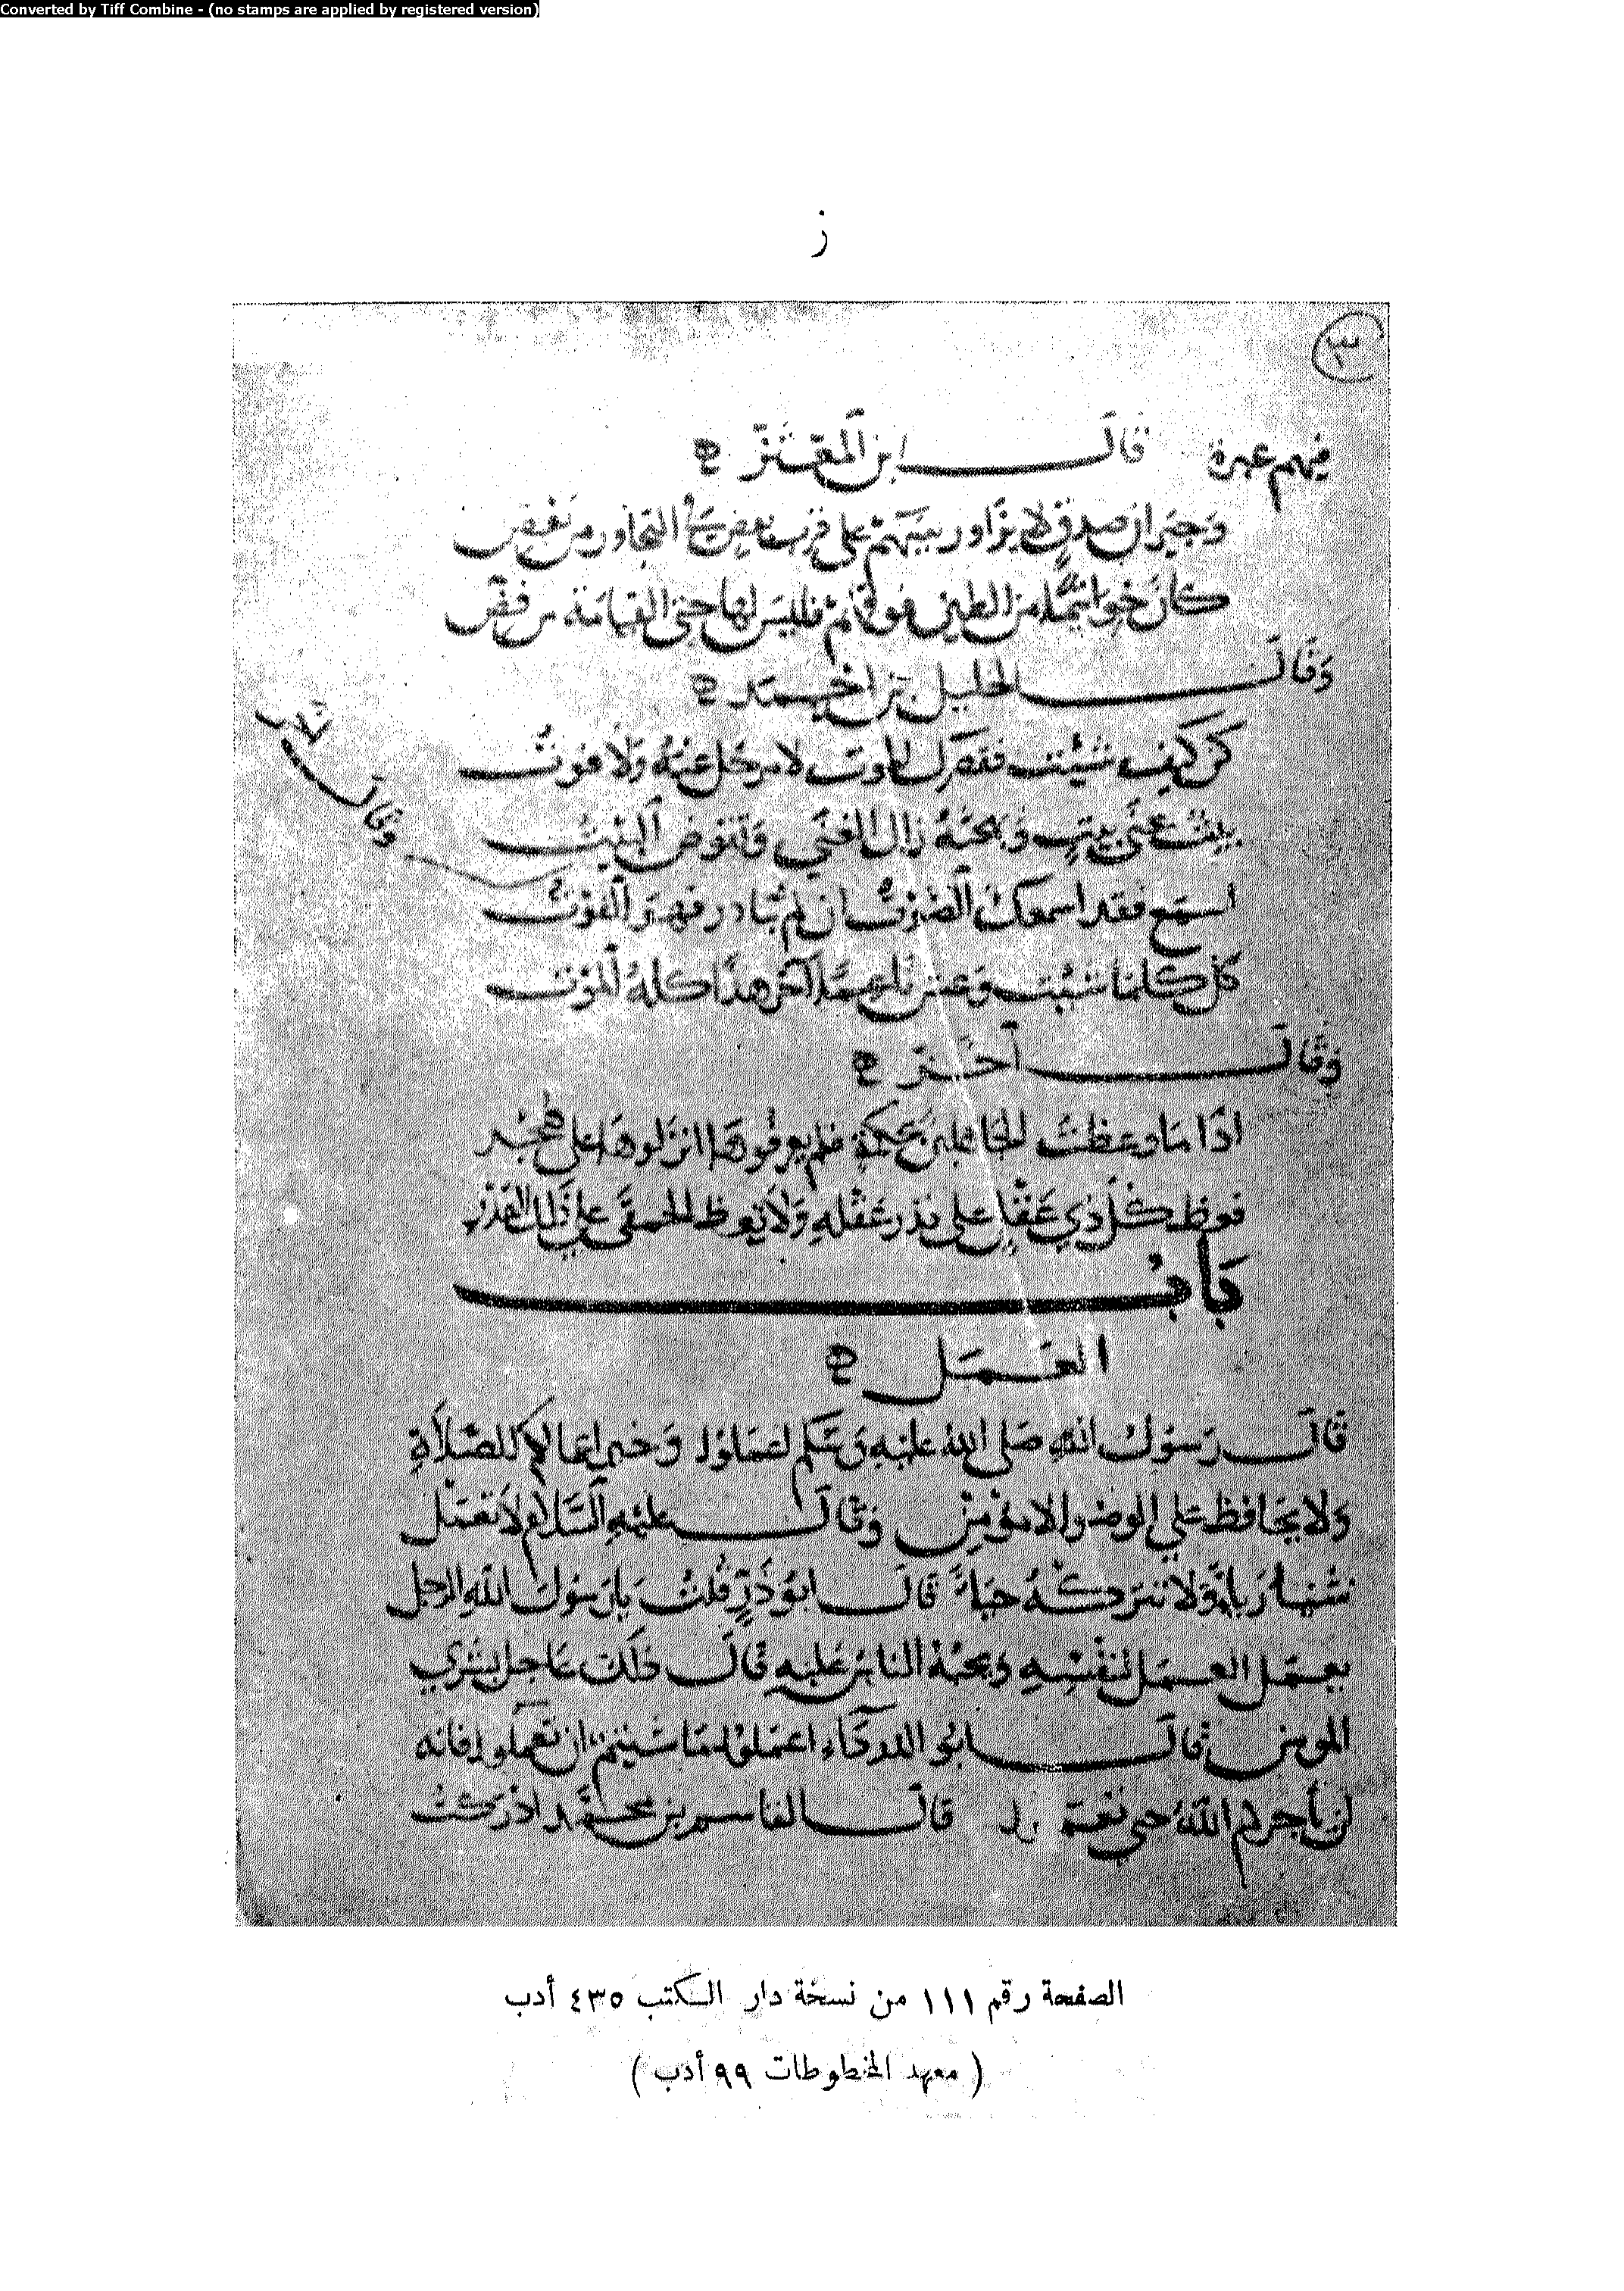 Converted by Tiff Combine - (no stamps are applied by registered version)
ز
٣
فيهم عبرة قال ابن المعتز
وجيران صدق لا يزاور بينهم على قرب بعض في التجاور من بعض
كان خواتيما من الطين فوقهم فليس لها حتى القيامة من فض
وقال الخليل بن احمد
وقال آخر
كن كيف شئت فقصرك الموت لا مزحل عنه ولا فوت
بينا غنى بيت وبهجته زال الغنى وتقوض البيت
اسمع فقد اسمعك الصوت ان لم تبادر فهو الفوت
كل كلما شئت وعش ناعما آخر هذا كله الموت
وقال آخر
اذا ما وعظت الجاهلين بحكمة فلم يعرفوها انزلوها على هجر
فعظ كل ذي عقل على قدر عقله ولا تعظ الحمقى على ذلك القدر
باب
العمل
قال رسول الله صلى الله عليه وسلم اعملوا وخير اعمالكم الصلاة
ولا يحافظ على الوضو الا مؤمن وقال عليه السلام لا تعمل
شيئا رياء ولا تتركه حياء قال ابو ذر قلت يا رسول الله الرجل
يعمل العمل لنفسه ويحبه الناس عليه قال ذلك عاجل بشرى
المومن قال ابو الدرداء اعملوا ما شيتم ان تعملوا فانه
لن يأجركم الله حتى تعملوا قال القاسم بن محمد ادركت
الصفحة رقم ١١١ من نسخة دار الكتب ٤٣٥ أدب
( معهد المخطوطات ٩٩ أدب )